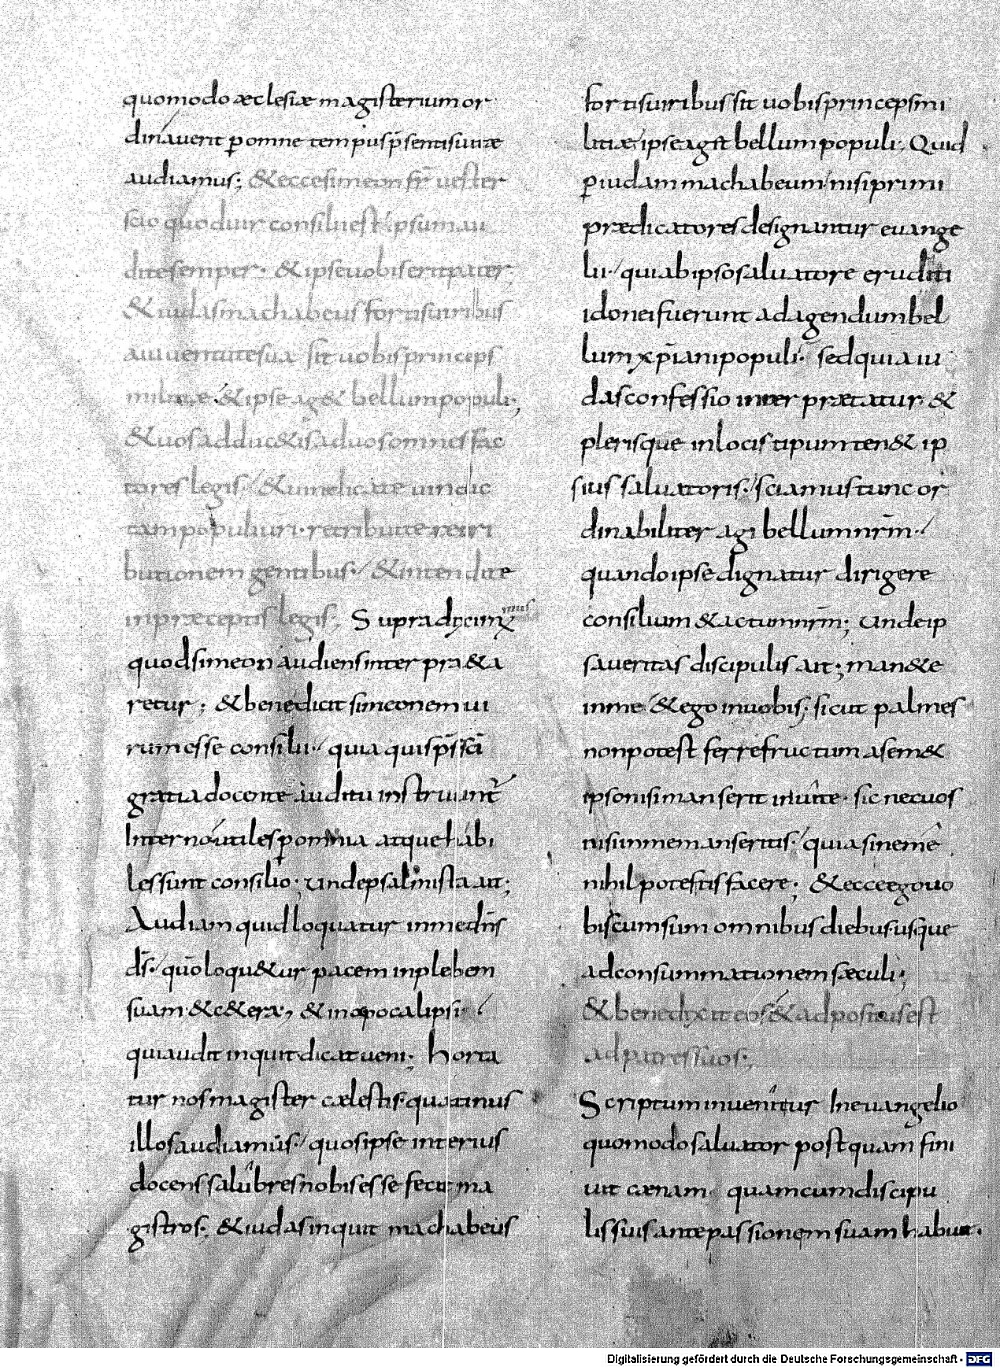 quomodo æclesiæ magisterium or
dinauerit ꝑ omne tempus p̄sentis uitæ
audiamus; & ecce simeon fr̄ uester
scio quod uir consilii est / ipsum au
dite semper · & ipse uobis erit pater;
& iudas machabeus fortis uiribus
a iuuentute sua sit uobis princeps
militiæ · & ipse ag& bellum populi;
& uos adduc&is ad uos omnes fac
tores legis / & uindicate uindic
tam populi uri · retribuite retri
butionem gentibus / & intendite
in præceptis legis; Supra dyximus
quod simeon audiens interpr&a
retur; & bene dicit simeonem ui
rum esse consilii / quia qui sp̄s sc̄i
gratia docente auditu instruunt̄
Inter nos utiles ꝑ omnia atque habi
les sunt consilio; unde psalmista ait;
Audiam quid loquatur in me dn̄s
ds̄ / quō loqu&ur pacem in plebem
suam & c&era, & in apocalipsi /
qui audit inquit dicat ueni; Horta
tur nos magister cælestis quatinus
illos audiamus / quos ipse interius
docens salubres nobis esse fecit ma
gistros; & iudas inquit machabeus
fortis uiribus sit uobis princeps mi
litiæ / ipse ag& bellum populi. Quid
ꝑ iudam machabeum / nisi primi
prædicatores designantur euange
lii / qui ab ipso saluatore eruditi
idonei fuerunt ad agendum bel
lum xp̄iani populi; sed quia iu
das confessio interprætatur &
plerisque in locis tipum ten& ip
sius saluatoris / sciamus tunc or
dinabiliter agi bellum nr̄m /
quando ipse dignatur dirigere
consilium & actum nr̄m; unde ip
sa ueritas discipulis ait; man&e
in me & ego in uobis; sicut palmes
non potest ferre fructum a sem&
ipso nisi manserit in uite · sic nec uos
nisi in me manseritis / quia sine me
nihil potestis facere; & ecce ego uo
biscum sum omnibus diebus usque
ad consummationem sæculi;
& benedyxit eos & adpositus est
ad patres suos;
Scriptum inuenitur In euangelio
quomodo saluator postquam fini
uit cænam quam cum discipu
lis suis ante passionem suam habuit.
Digitalisierung gefördert durch die Deutsche Forschungsgemeinschaft - DFG